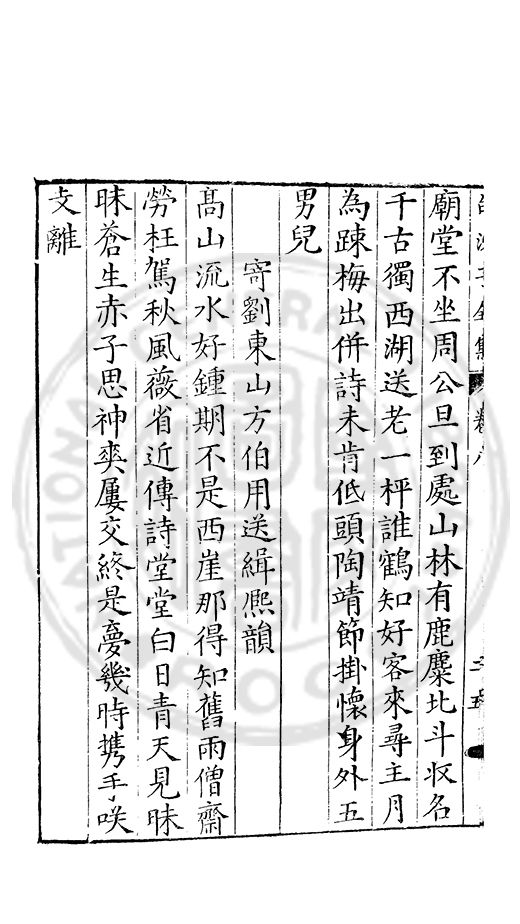 廟堂不坐周公旦到處山林有鹿麋北斗収名
千古獨西湖送老一枰誰鶴知好客來尋主月
為踈梅出併詩未肯低頭陶靖節掛懷身外五
男兒
寄劉東山方伯用送緝熈韻
髙山流水好鍾期不是西崖那得知舊雨僧齋
勞枉駕秋風薇省近傳詩堂堂白日青天見昧
昧蒼生赤子思神爽屢交終是夣幾時携手咲
支離